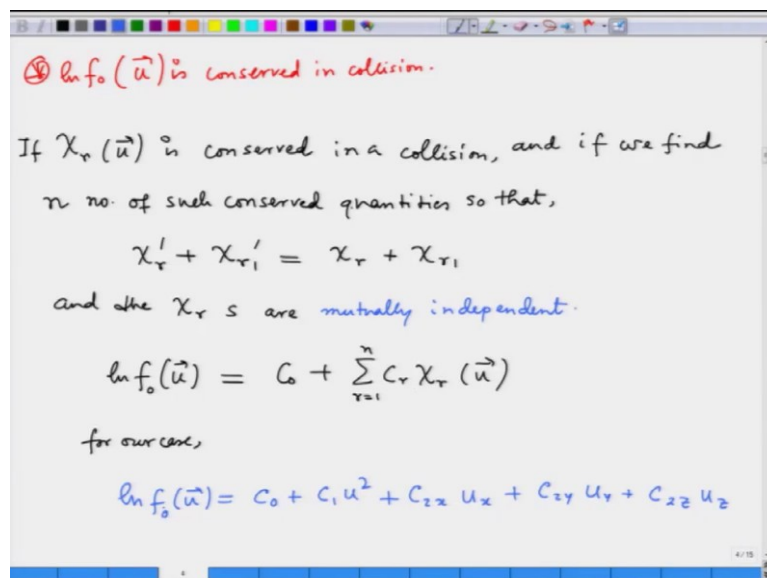 ln f₀(u⃗) is conserved in collision.
If χᵣ(u⃗) is conserved in a collision, and if we find
n no. of such conserved quantities so that,
χᵣ' + χᵣ₁' = χᵣ + χᵣ₁
and the χᵣ s are mutually independent.
ln f₀(u⃗) = C₀ + Σⁿᵣ₌₁ Cᵣ χᵣ (u⃗)
for our case,
ln f₀(u⃗) = C₀ + C₁u² + C₂ₓ uₓ + C₂y uy + C₂z uz
4/15